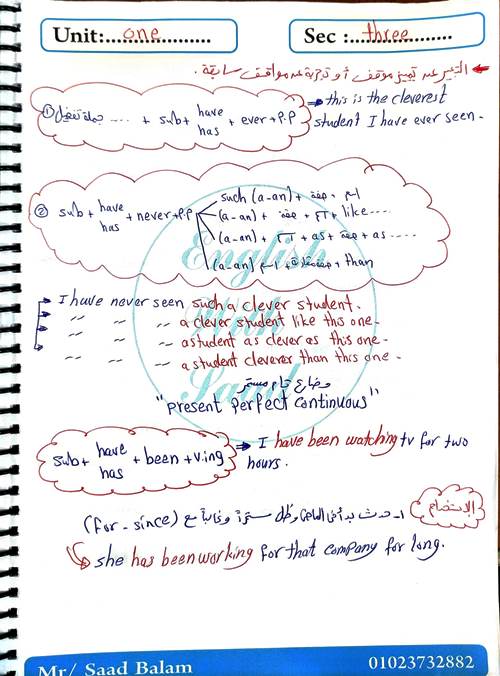 Unit:......one......
Sec :......three......
← التعبير عن تميز موقف أو تجربة عن مواقف سابقة.
① جملة تفضيل .... + sub + have has + ever + P.P
→ this is the cleverest
student I have ever seen.
② sub + have has + never + P.P
such (a-an) + صفة + اسم
(a-an) + صفة + اسم + like.....
(a-an) + اسم + as + صفة + as ....
(a-an) اسم + صفة مقارنة + than
English
With
Saad
I have never seen such a clever student.
" " " a clever student like this one.
" " " a student as clever as this one.
" " " a student cleverer than this one.
مضارع تام مستمر
"present perfect continuous"
sub + have has + been + v.ing
→ I have been watching tv for two
hours.
الاستخدام
١- حدث بدأ في الماضي وظل مستمراً وغالباً مع (for - since)
she has been working for that company for long.
Mr/ Saad Balam
01023732882